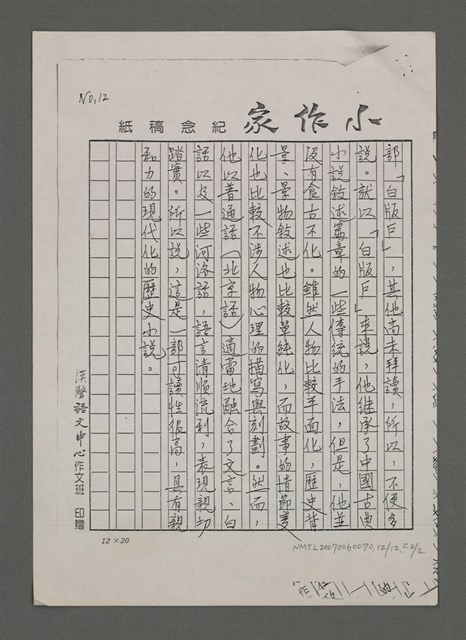 NO.12
小作家紀念稿紙
部「白版戶」，其他尚未拜讀，所以，不便多
說。就以「白版戶」來說，他繼承了中國古典
小說敘述篇章的一些傳統的手法，但是，他並
沒有食古不化。雖然人物比較平面化，歷史背
景、景物敘述也比較單純化，而故事的情節變
化也比較不涉人物心理的描寫與刻劃。然而，
他以普通話（北京話）適當地融合了文言、白
話以及一些河洛話，語言清順流利，表現親切
踏實。所以說，這是一部可讀性很高，具有親
和力的現代化的歷史小說。
漢聲語文中心作文班 印贈
12×20
NMTL20070060070,12/12,c2/2